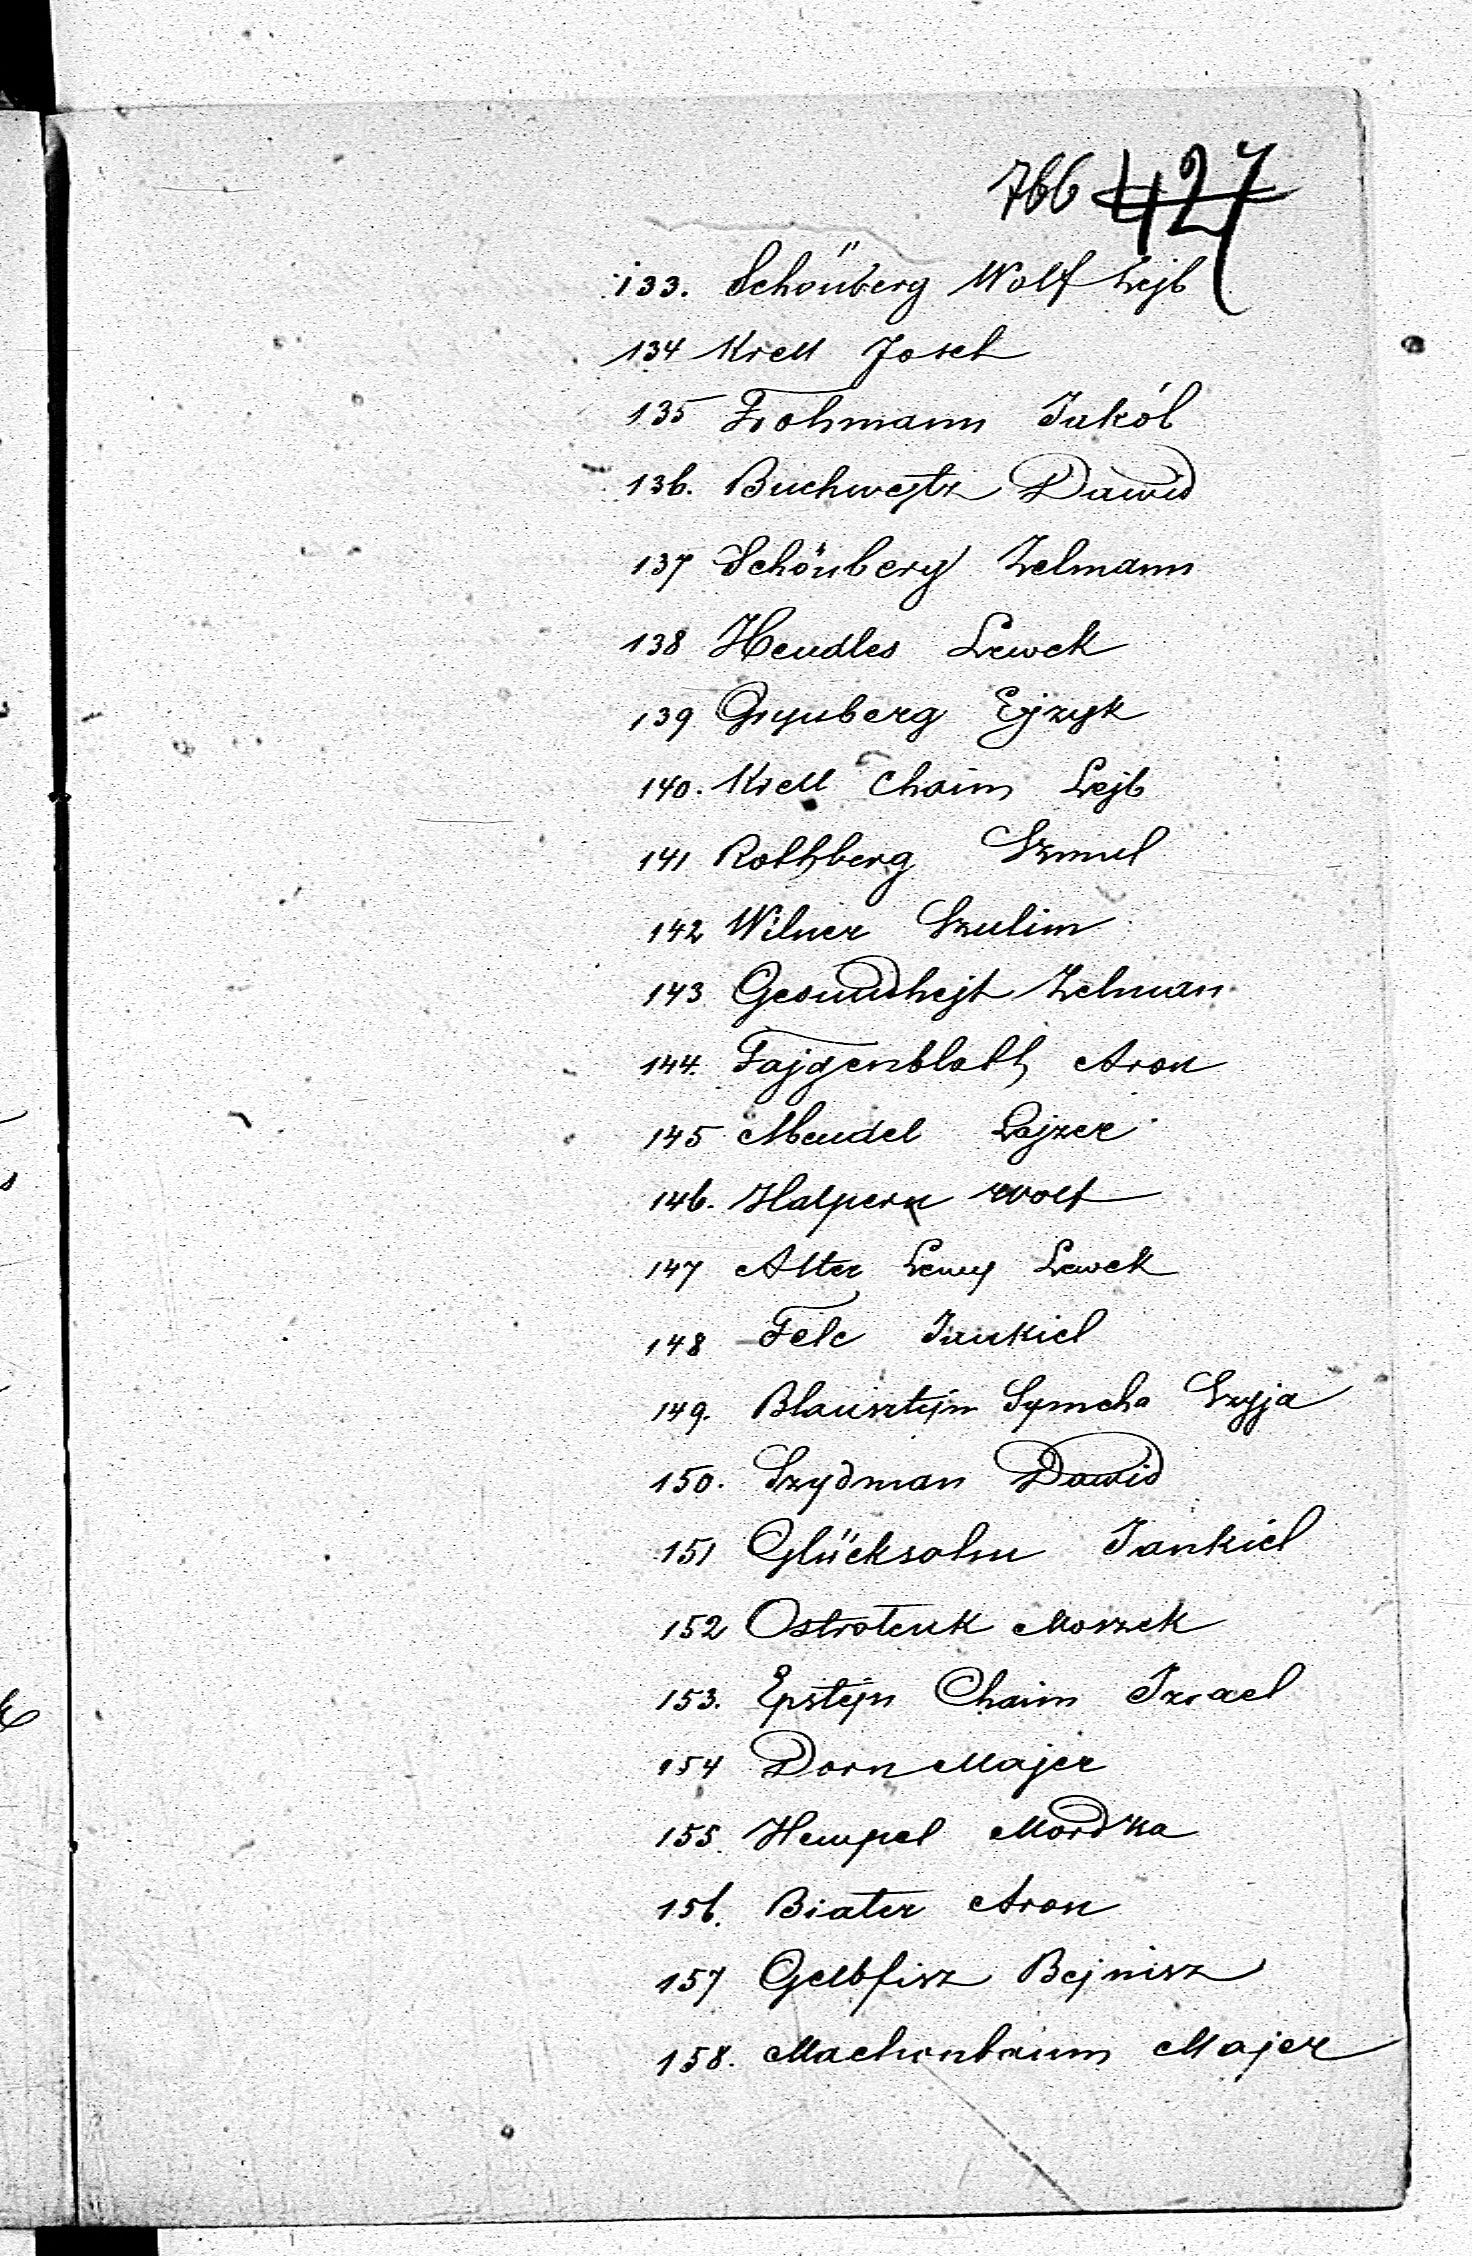 766 427
133. Schönberg Wolf Lejb
134 Krell Josek
135 Frohmann Jakób
136. Buchwejtz Dawid
137 Schönberg Zelmann
138 Hendles Lewek
139 Grynberg Ejzyk
140. Krell Chaim Lejb
141 Rothberg Szmul
142 Wilner Szulim
143 Gesundhejt Zelman
144. Fajgenblath Aron
145 Mendel Lajzer
146. Halpern Wolf
147 Alter Lewy Lewek
148 Felc Jankiel
149. Blausztejn Symcha Szyja
150. Szydman Dawid
151 Glücksohn Jankiel
152 Ostrotenk Moszek
153. Epstejn Chaim Izrael
154 Dorn Majer
155. Hempel Mordka
156. Biater Aron
157 Gelbfisz Bejnisz
158. Machenbaum Majer